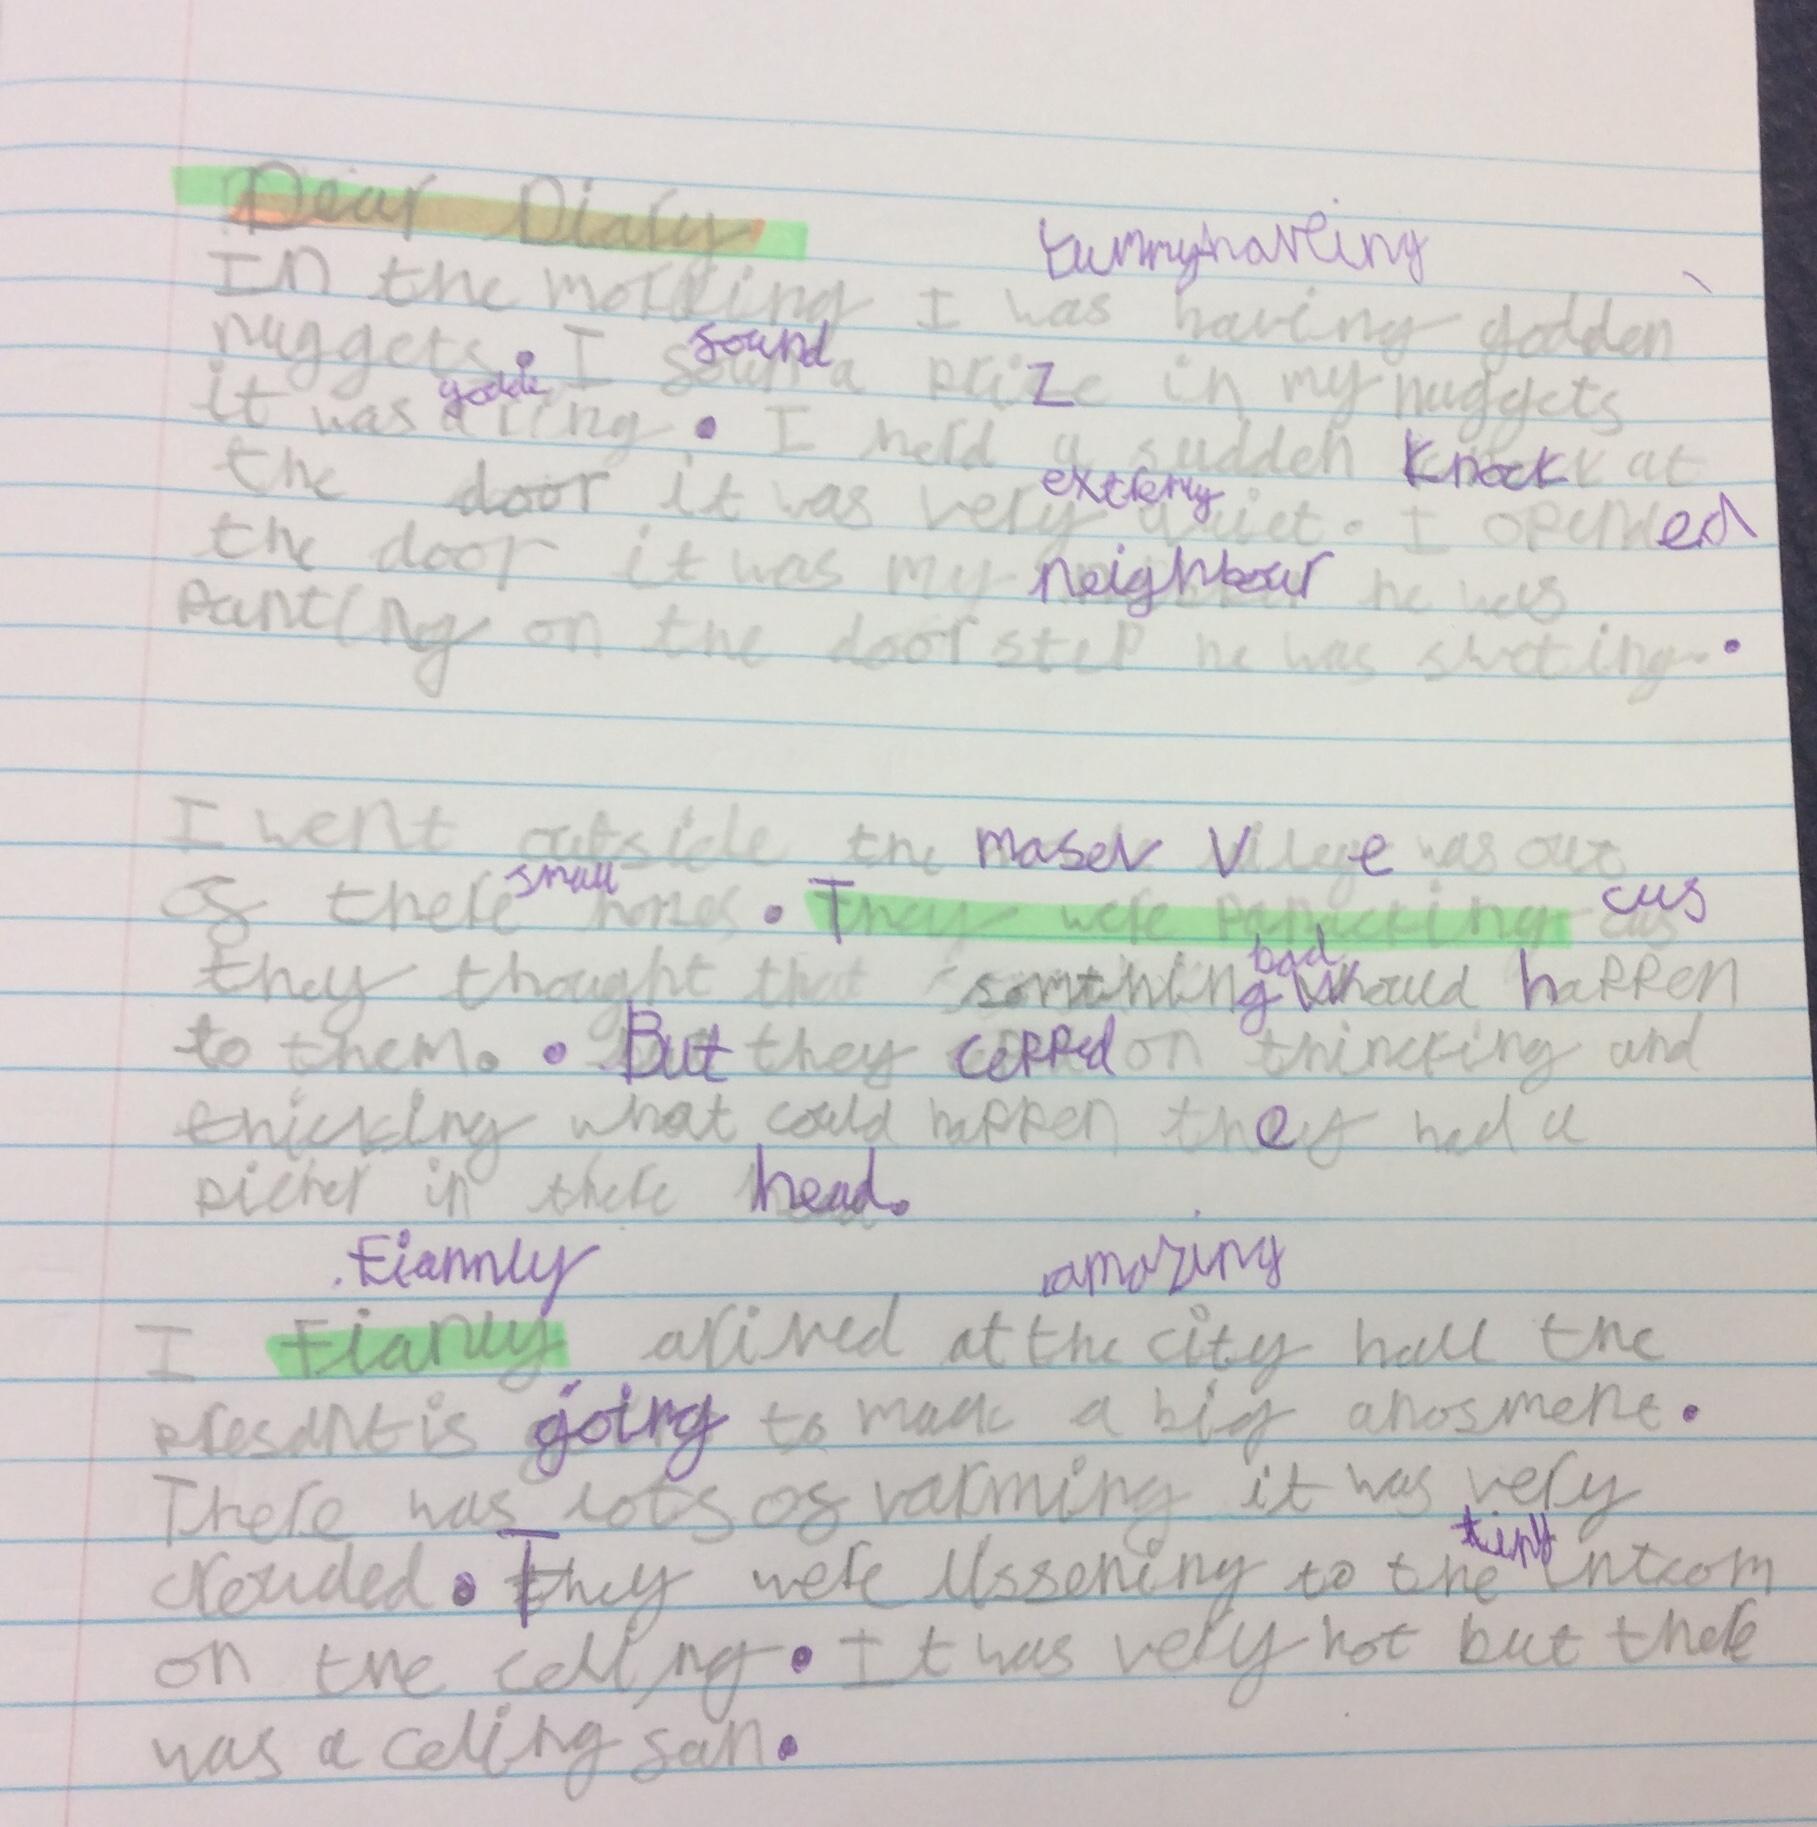 Dear Diary
yummy having
In the morning I was having godden
nuggets. I sound a prize in my nuggets
it was a godde ring. I herd a sudden Knock at
the door it was very extremy quiet. I opended
the door it was my neighbour he was
panting on the door step he was sweting.
I went outside the maser Village was out
of there small homes. They were panicking cus
they thought that somthing bad should happen
to them. But they cepped on thincking and
thicking what could happen they had a
picher in there head.
Fiannly amazing
I Fianly arived at the city hall the
presdnt is going to mack a big anosment.
There was lots of varming it was very
crouded. They were lissening to the tiny intcom
on the celling. It was very hot but there
was a celling san.